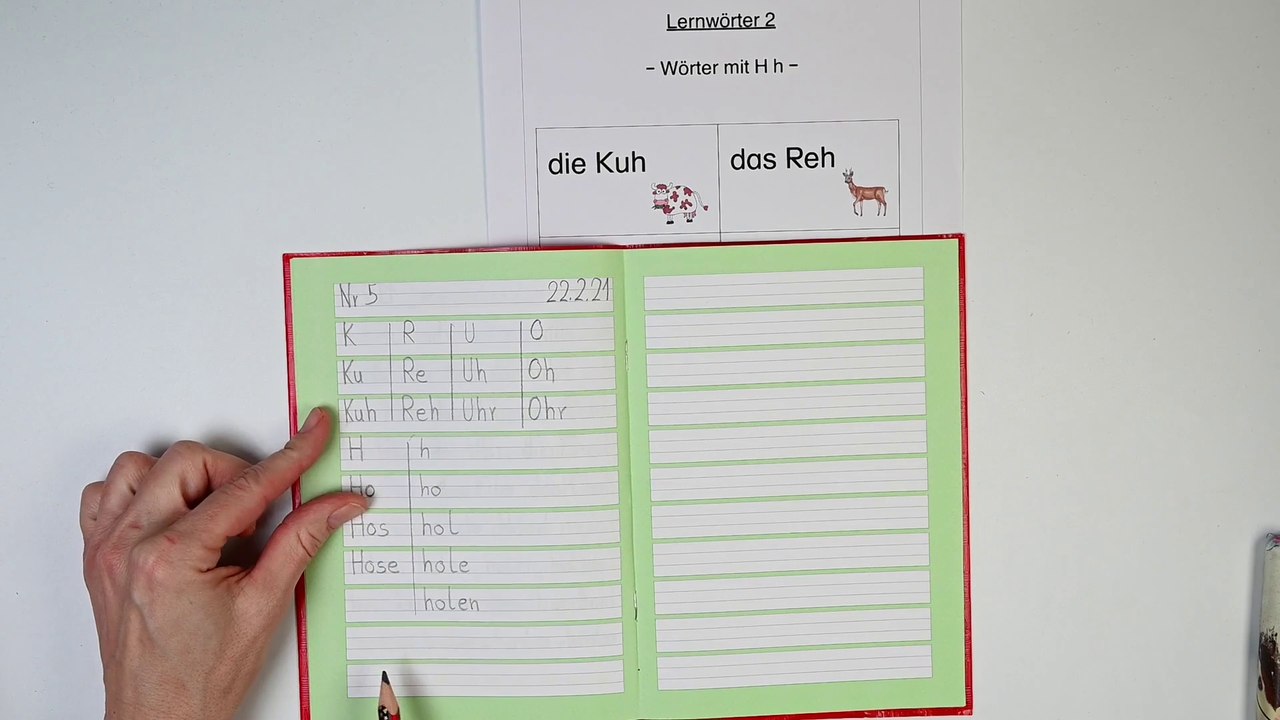 Lernwörter 2
– Wörter mit H h –
die Kuh das Reh
Nr 5 22.2.21
K R U O
Ku Re Uh Oh
Kuh Reh Uhr Ohr
H h
Ho ho
Hos hol
Hose hole
holen